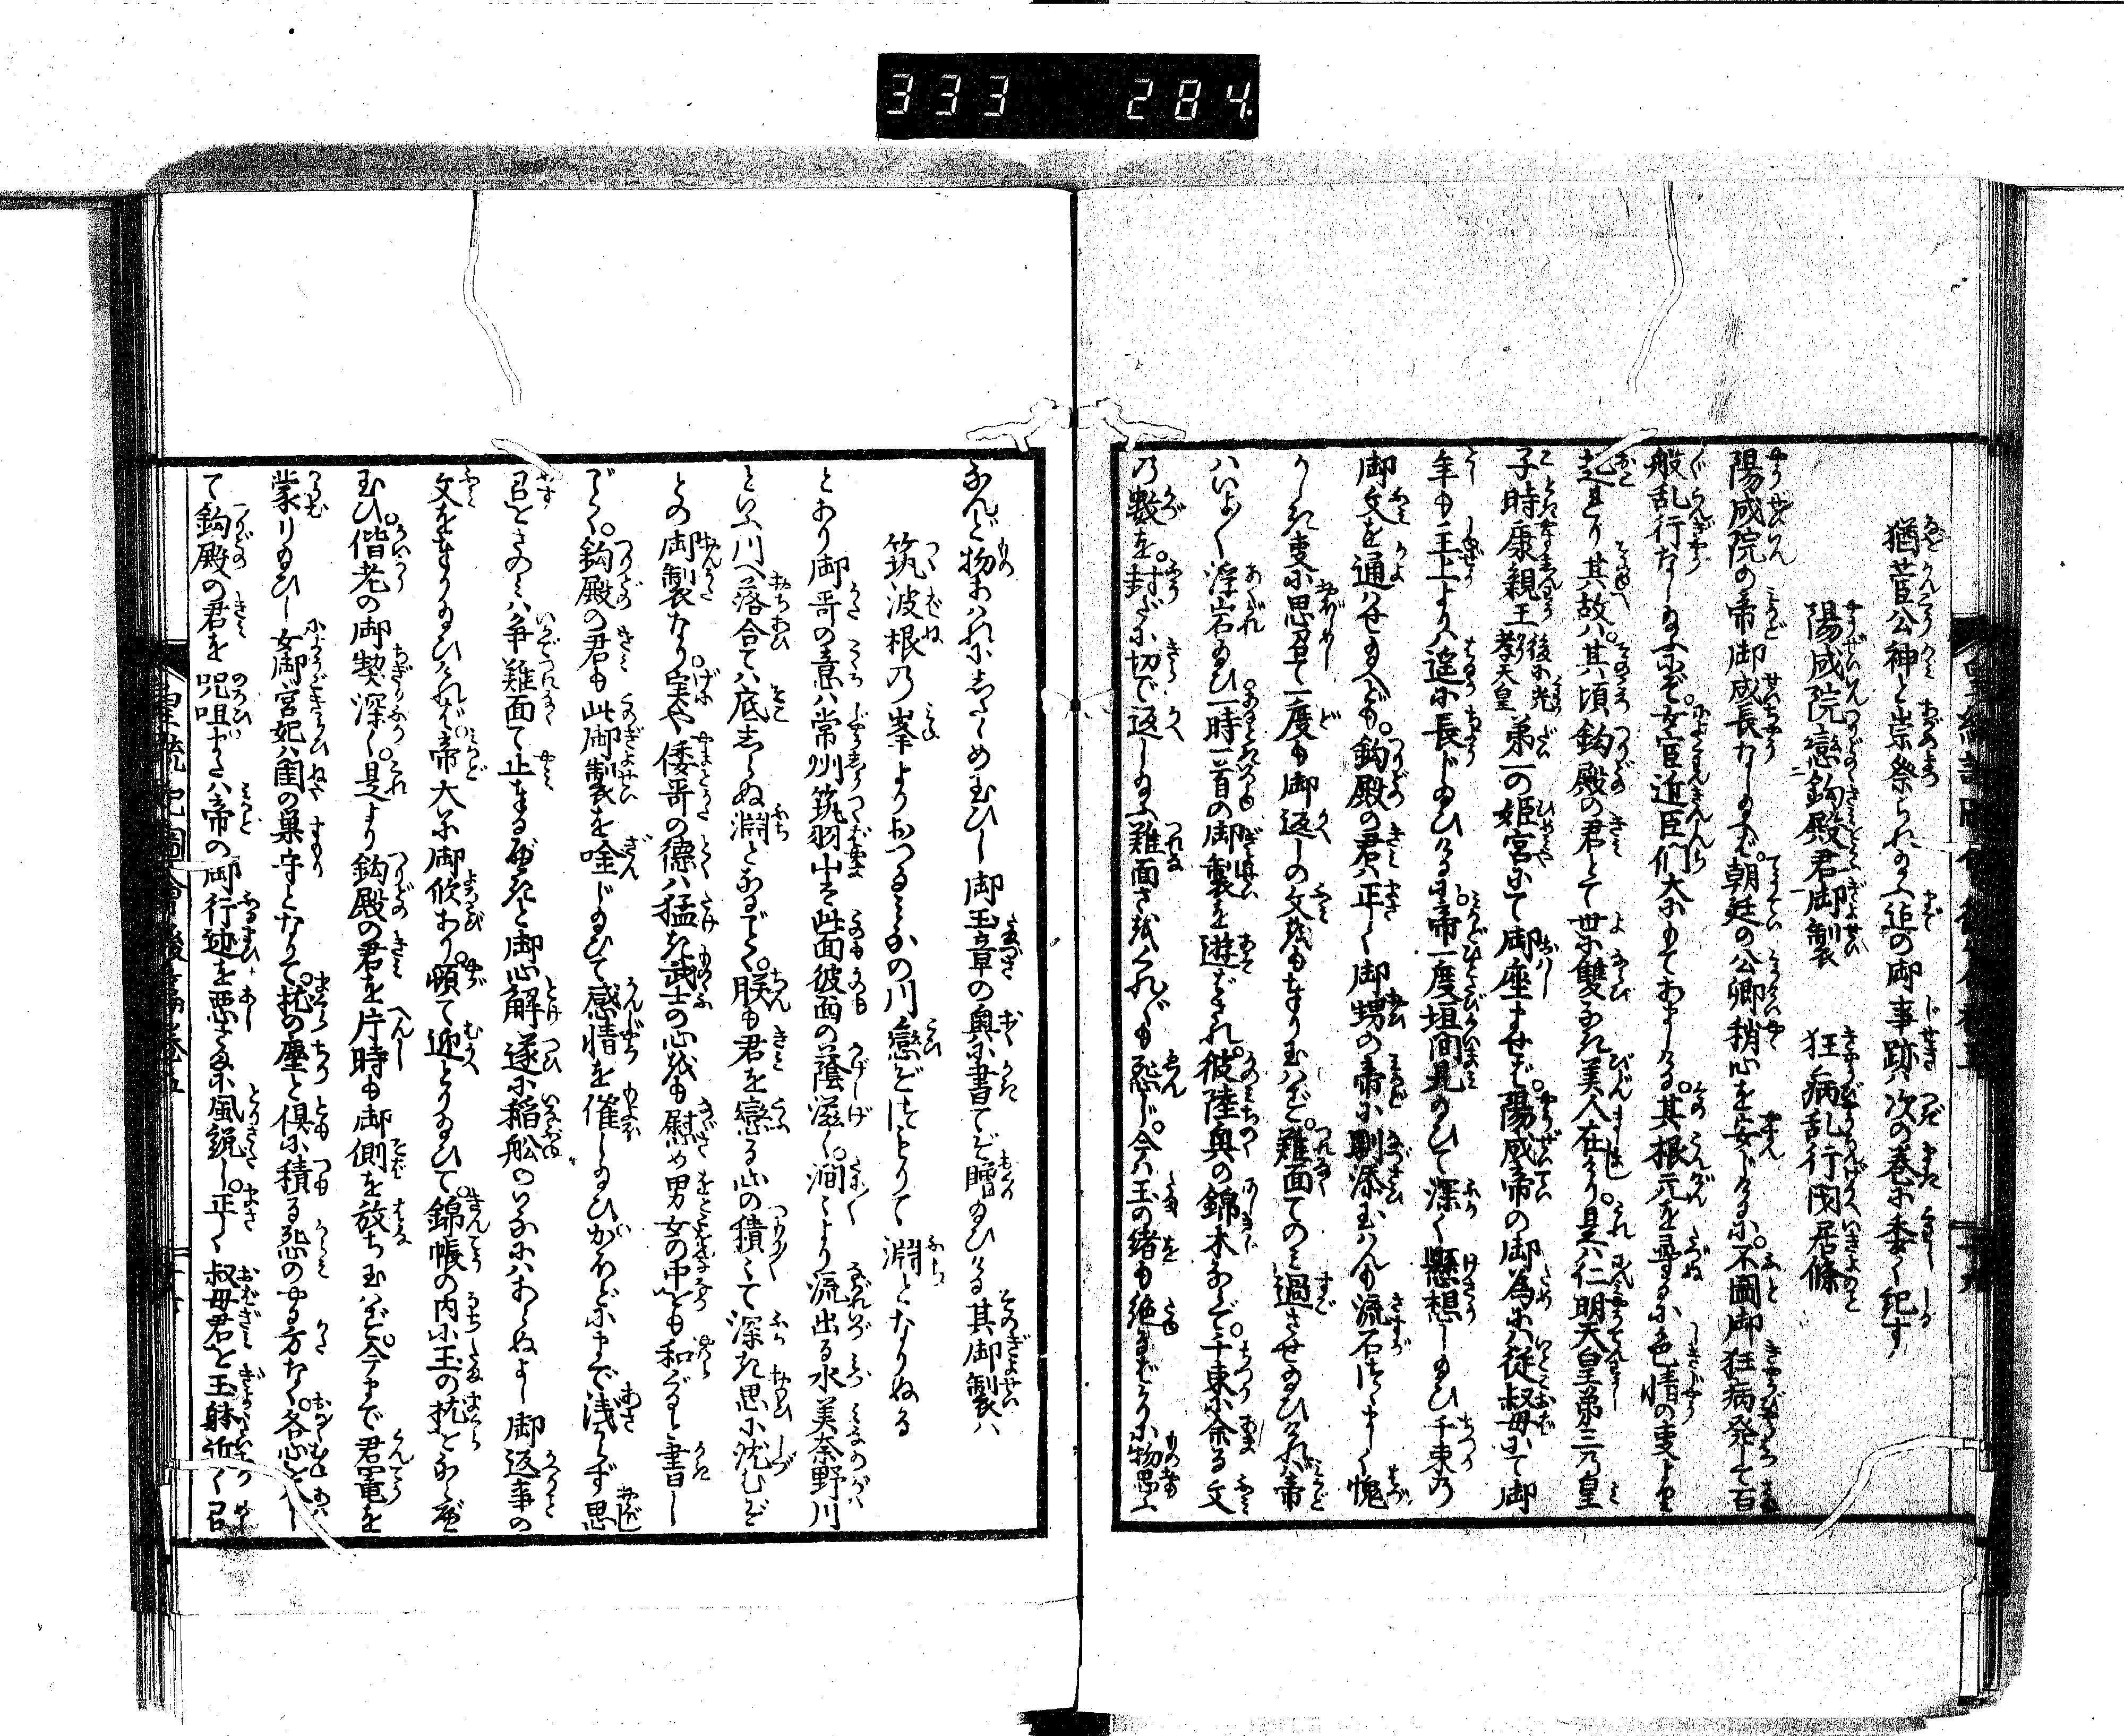 333 284
猶菅公神と崇祭られ給ふ迄の御事跡ハ次の巻に委く紀す
陽成院戀釣殿君御製 狂病乱行閑居條
陽成院の帝御成長ましますまで朝廷の公卿稍心を安じけるに不圖御狂病発して百
般乱行なし給ふにぞ女官近臣們大にもてあましける其根元を尋るに色情の事より
起れり其故ハ其頃釣殿の君とて世に雙なき美人在けり是ハ仁明天皇第三乃皇
子時康親王後に光孝天皇第一の姫宮にて御座ませバ陽成帝の御為にハ従叔母にて御
年も主上よりハ遙に長じ給ひけるに帝一度垣間見給ひて深く懸想し給ひ千束乃
御文を通ハせ給へども釣殿の君ハ正しく御甥の帝に馴添玉ハんも流石につゝましく愧
かしき事に思召て一度も御返しの文をもまゐり玉ハず難面てのミ過させ給ひけれバ帝
ハいよ〳〵浮岩給ひ一時一首の御製を遊ばされ彼陸奥の錦木ならで千束に余る文
乃数を封だに切で返し給ふ難面さをくれ〴〵も怨じ今ハ玉の緒も絶るばかりに物思ふ
なんど物あハれにしたゝめ玉ひし御玉章の奥に書てぞ贈給ひける其御製ハ
筑波根乃峯よりおつるミなの川戀ぞつもりて淵となりぬる
とあり御哥の意ハ常州筑羽山は此面彼面の蔭滋く澗〻より流出る水美奈野川
といふ川へ落合てハ底しらぬ淵となるごとく朕も君を戀る心の積〻て深き思に沈むぞ
との御製なり実や倭哥の徳ハ猛き武士の心をも慰め男女の中をも和ぐると書し
ごとく釣殿の君も此御製を唫じ給ひて感情を催し給ひかほどにまで浅からず思
召をさのミハ争難面て止まるべきと御心解遂に稲舩のいなにハあらぬよし御返事の
文をまゐり給ひけれバ帝大に御欣あり頓て迎とり給ひて錦帳の内に玉の枕をならべ
玉ひ偕老の御契深く是より釣殿の君を片時も御側を放ち玉ハず今まで君寵を
蒙り給ひし女御宮妃ハ閨の巣守となりて枕の塵と倶に積る怨のやる方なく各心を合し
て釣殿の君を呪咀または帝の御行迹を悪さまに風説し正しく叔母君を玉躰近く召